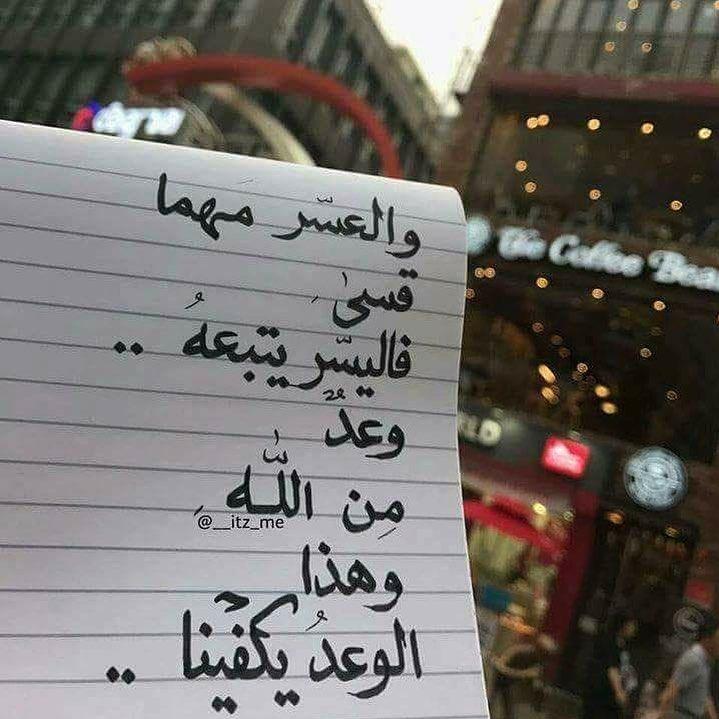 والعسّر مهما
قسىٰ
فاليسّر يتبعهُ ..
وعدٌ
مِن اللّٰهِ
@__itz_me
وهذا
الوعدُ يكفينا ..
The Coffee Bean